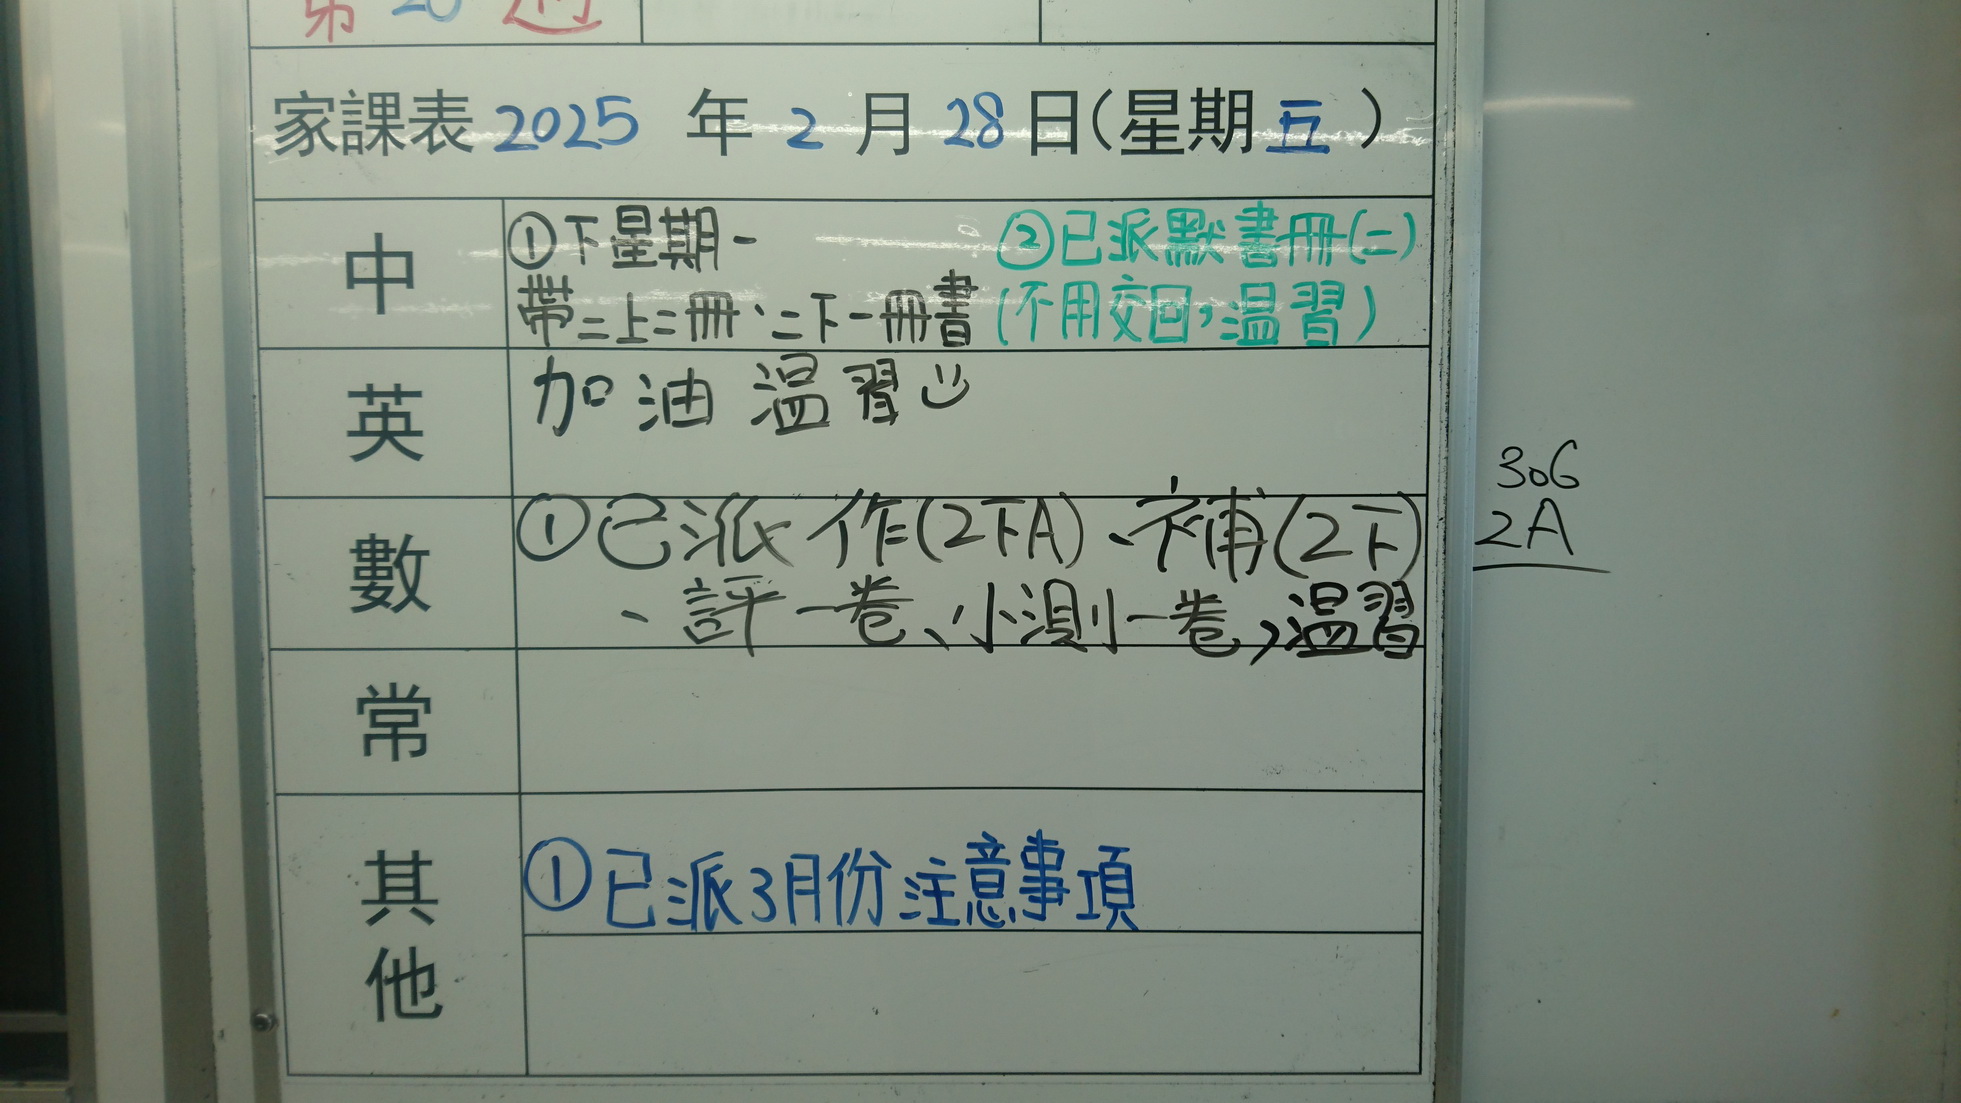 第20週
家課表 2025 年 2 月 28 日(星期五)
中
①下星期一
帶二上二冊、二下一冊書
②已派默書冊(二)
(不用交回,温習)
英
加油 温習
數
①已派 作(2下A)、補(2下)
、評一卷、小測一卷,温習
常
其他
①已派3月份注意事項
306
2A